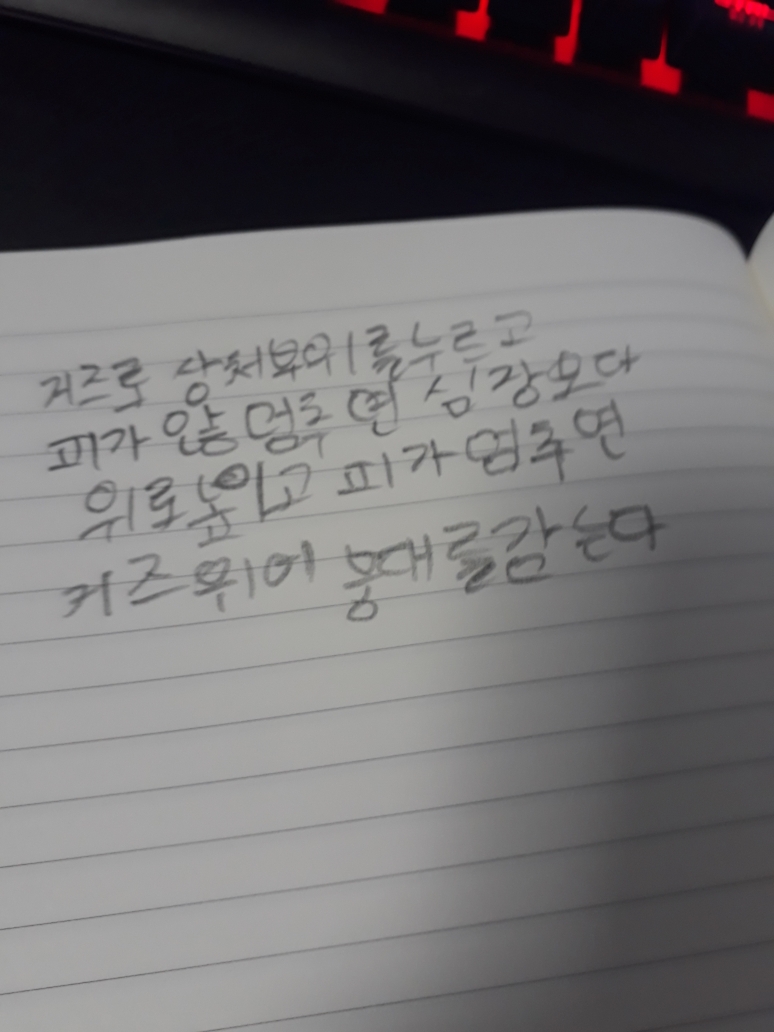 거즈로 상처부위를누르고
피가 않멈추면 심장보다
위로높이고 피가멈추면
거즈위에 붕대를감는다